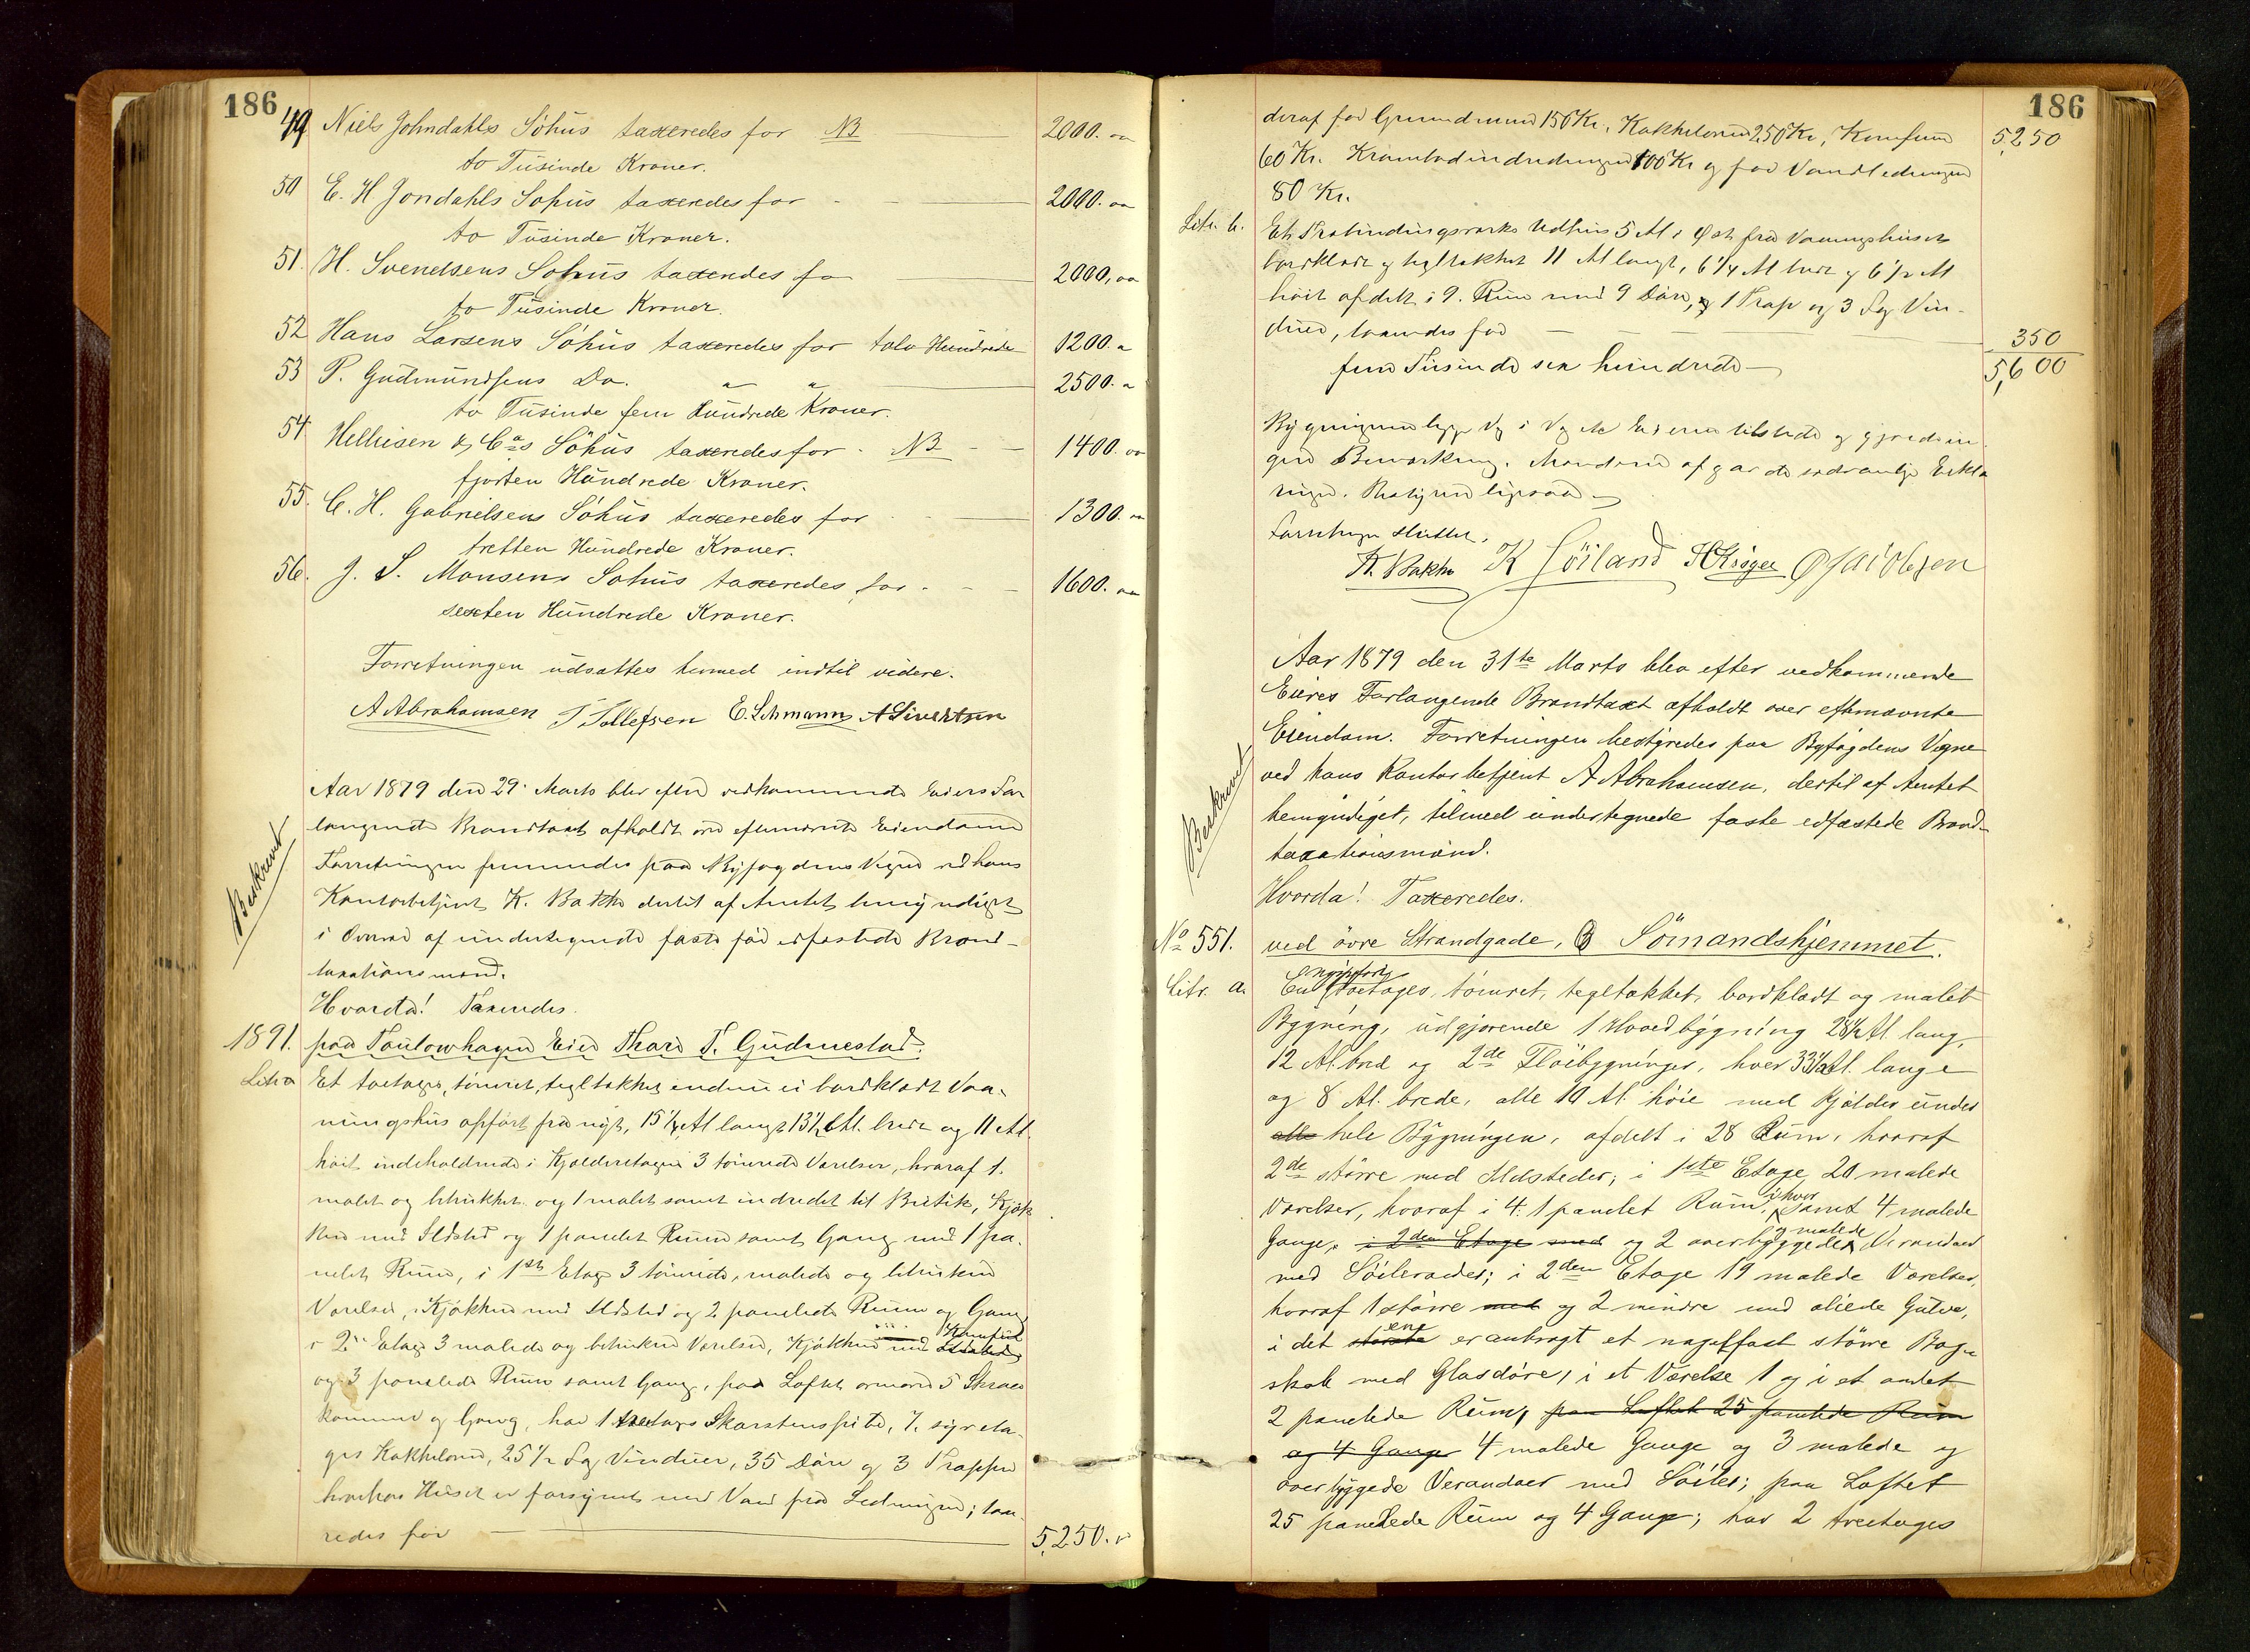 186
49 Niels Johndahls Söhus taxeredes for NB 2000. oo
to Tusinde Kroner.
50 E. H. Jondahls Sohus taxeredes for - - 2000. oo
to Tusinde Kroner.
51. H. Svendsens Sohus taxeredes fo 2000, oo
to Tusinde Kroner.
52 Hans Larsens Söhus taxeredes for tolv Hundrede 1200. "
53 P. Gudmundsens Do. " " 2500. "
to Tusinde fem Hundrede Kroner.
54 Helliesen & Cos Söhus taxeredes for - NB - - 1400. oo
fjorten Hundrede Kroner.
55. C. H. Gabrielsens Söhus taxeredes for 1300. oo
tretten Hundrede Kroner.
56. J. S. Monsens Sohus taxeredes for - - - 1600. oo
sexten Hundrede Kroner.
Forretningen udsattes hermed indtil videre.
A Abrahamsen T Tollefsen E. Lehmann A Sivertsen
Aar 1879 den 29. Marts blev efter vedkommende Eiers For
langende Brandtaxt afholdt over efternævnte Eiendom
Forretningen fremmedes paa Byfogdens Vegne ved hans
Kontorbetjent K. Bakke dertil af Amtet bemyndiget
i Overvær af undertegnede faste för edfæstede Brand-
taxationsmænd.
Beskrevet
Hvorda! Taxeredes.
1891. paa Taulowhagen Eier Thore T. Gudmestad.
Litr a Et toetages, tömret, tegltækket endnu ei bordklædt Vaa-
ningshus opfört fra nyt, 15 1/4 Al langt 13 1/2 Al. bredt og 11 Al.
höit indeholdende i Kjelderetagen 3 tömrede Værelser, hvoraf 1.
malet og betrukket og 1 malet samt indredet til Butik, Kjök
ken med Ildsted og 1 panelet Rum samt Gang med 1 pa-
nelet Rum, i 1ste Etage 3 tömrede, malede og betrukne
Værelser, Kjökken med Ildsted og 2 panelede Rum og Gang
i 2den Etage 3 malede og betrukne Værelser, Kjökken med Ildsted Komfur
og 3 panelede Rum samt Gang, paa Loftet 5 Skraa
kammer og Gang, har 1 treetages Skorstenspibe, 7.
ges Kakkelovne, 25 1/2 Fag Vinduer, 35 Döre og 3 Trapper
hvorhos Huset er forsynet med Vand fra Ledningen; taxe-
redes for 5,250. "
186
deraf for Grundmuren 150 Kr., Kakkelovne 250 Kr., Komfuren 5,250
60 Kr. Krambodindredningen 100 Kr og for Vandledningen
80 Kr.
Litr. b. Et Udhus 5 Al i Öst fra Vaaningshuset
bordklædt og tegltækket 11 Al langt, 6 1/4 Al bredt og 6 1/2 Al
höit afdelt i 9. Rum med 9 Döre, og 1 Trap og 3 Fag Vin-
duer, taxeredes for 350
fem Tusinde sex hundrede 5,600
Bygningerne ligge Eieren tilstede og gjorde in
gen Bemærkning. Mændene afgav de sædvanlige Erklæ
ringer.
Forretningen sluttet.
K. Bakke K Söiland H Kröger O Jacobsen
Aar 1879 den 31te Marts blev efter vedkommende
Eieres Forlangende Brandtaxt afholdt over efternævnte
Eiendom. Forretningen bestyredes paa Byfogdens Vegne
ved hans Kontorbetjent A Abrahamsen, dertil af Amtet
bemyndiget, tilmed undertegnede faste edfæstede Brand-
taxationsmænd.
Beskrevet
Hvorda! Taxeredes.
No 551. ved övre Strandgade, Sömandshjemmet.
Litr. a. En nyopfört toetages, tömret, tegltækket, bordklædt og malet
Bygning, udgjörende 1 Hovedbygning 28 1/2 Al. lang,
12 Al. bred og 2de Flöibygninger, hver 33 1/2 Al. lange
og 8 Al. brede, alle 10 Al. höie med Kjelder under
alle hele Bygningen, afdelt i 28 Rum, hvoraf
2de större med Ildsteder; i 1ste Etage 20 malede
Værelser, hvoraf i 4. 1 panelet Rum, i hver samt 4 malede
Gange, i 2den Etage med og 2 overbyggede og malede Verandaer
med Söilerader; i 2den Etage 19 malede Værelser,
hvoraf 1 större med og 2 mindre med oliede Gulve,
i det störste ene er anbragt et nagelfast större Bog-
skab med Glasdöre, i et Værelse 1 og i et andet
2 panelede Rum, paa Loftet 25 panelede Rum
og 4 Gange 4 malede Gange og 3 malede og
overbyggede Verandaer med Söiler; paa Loftet
25 panelede Rum og 4 Gange; har 2 treetages